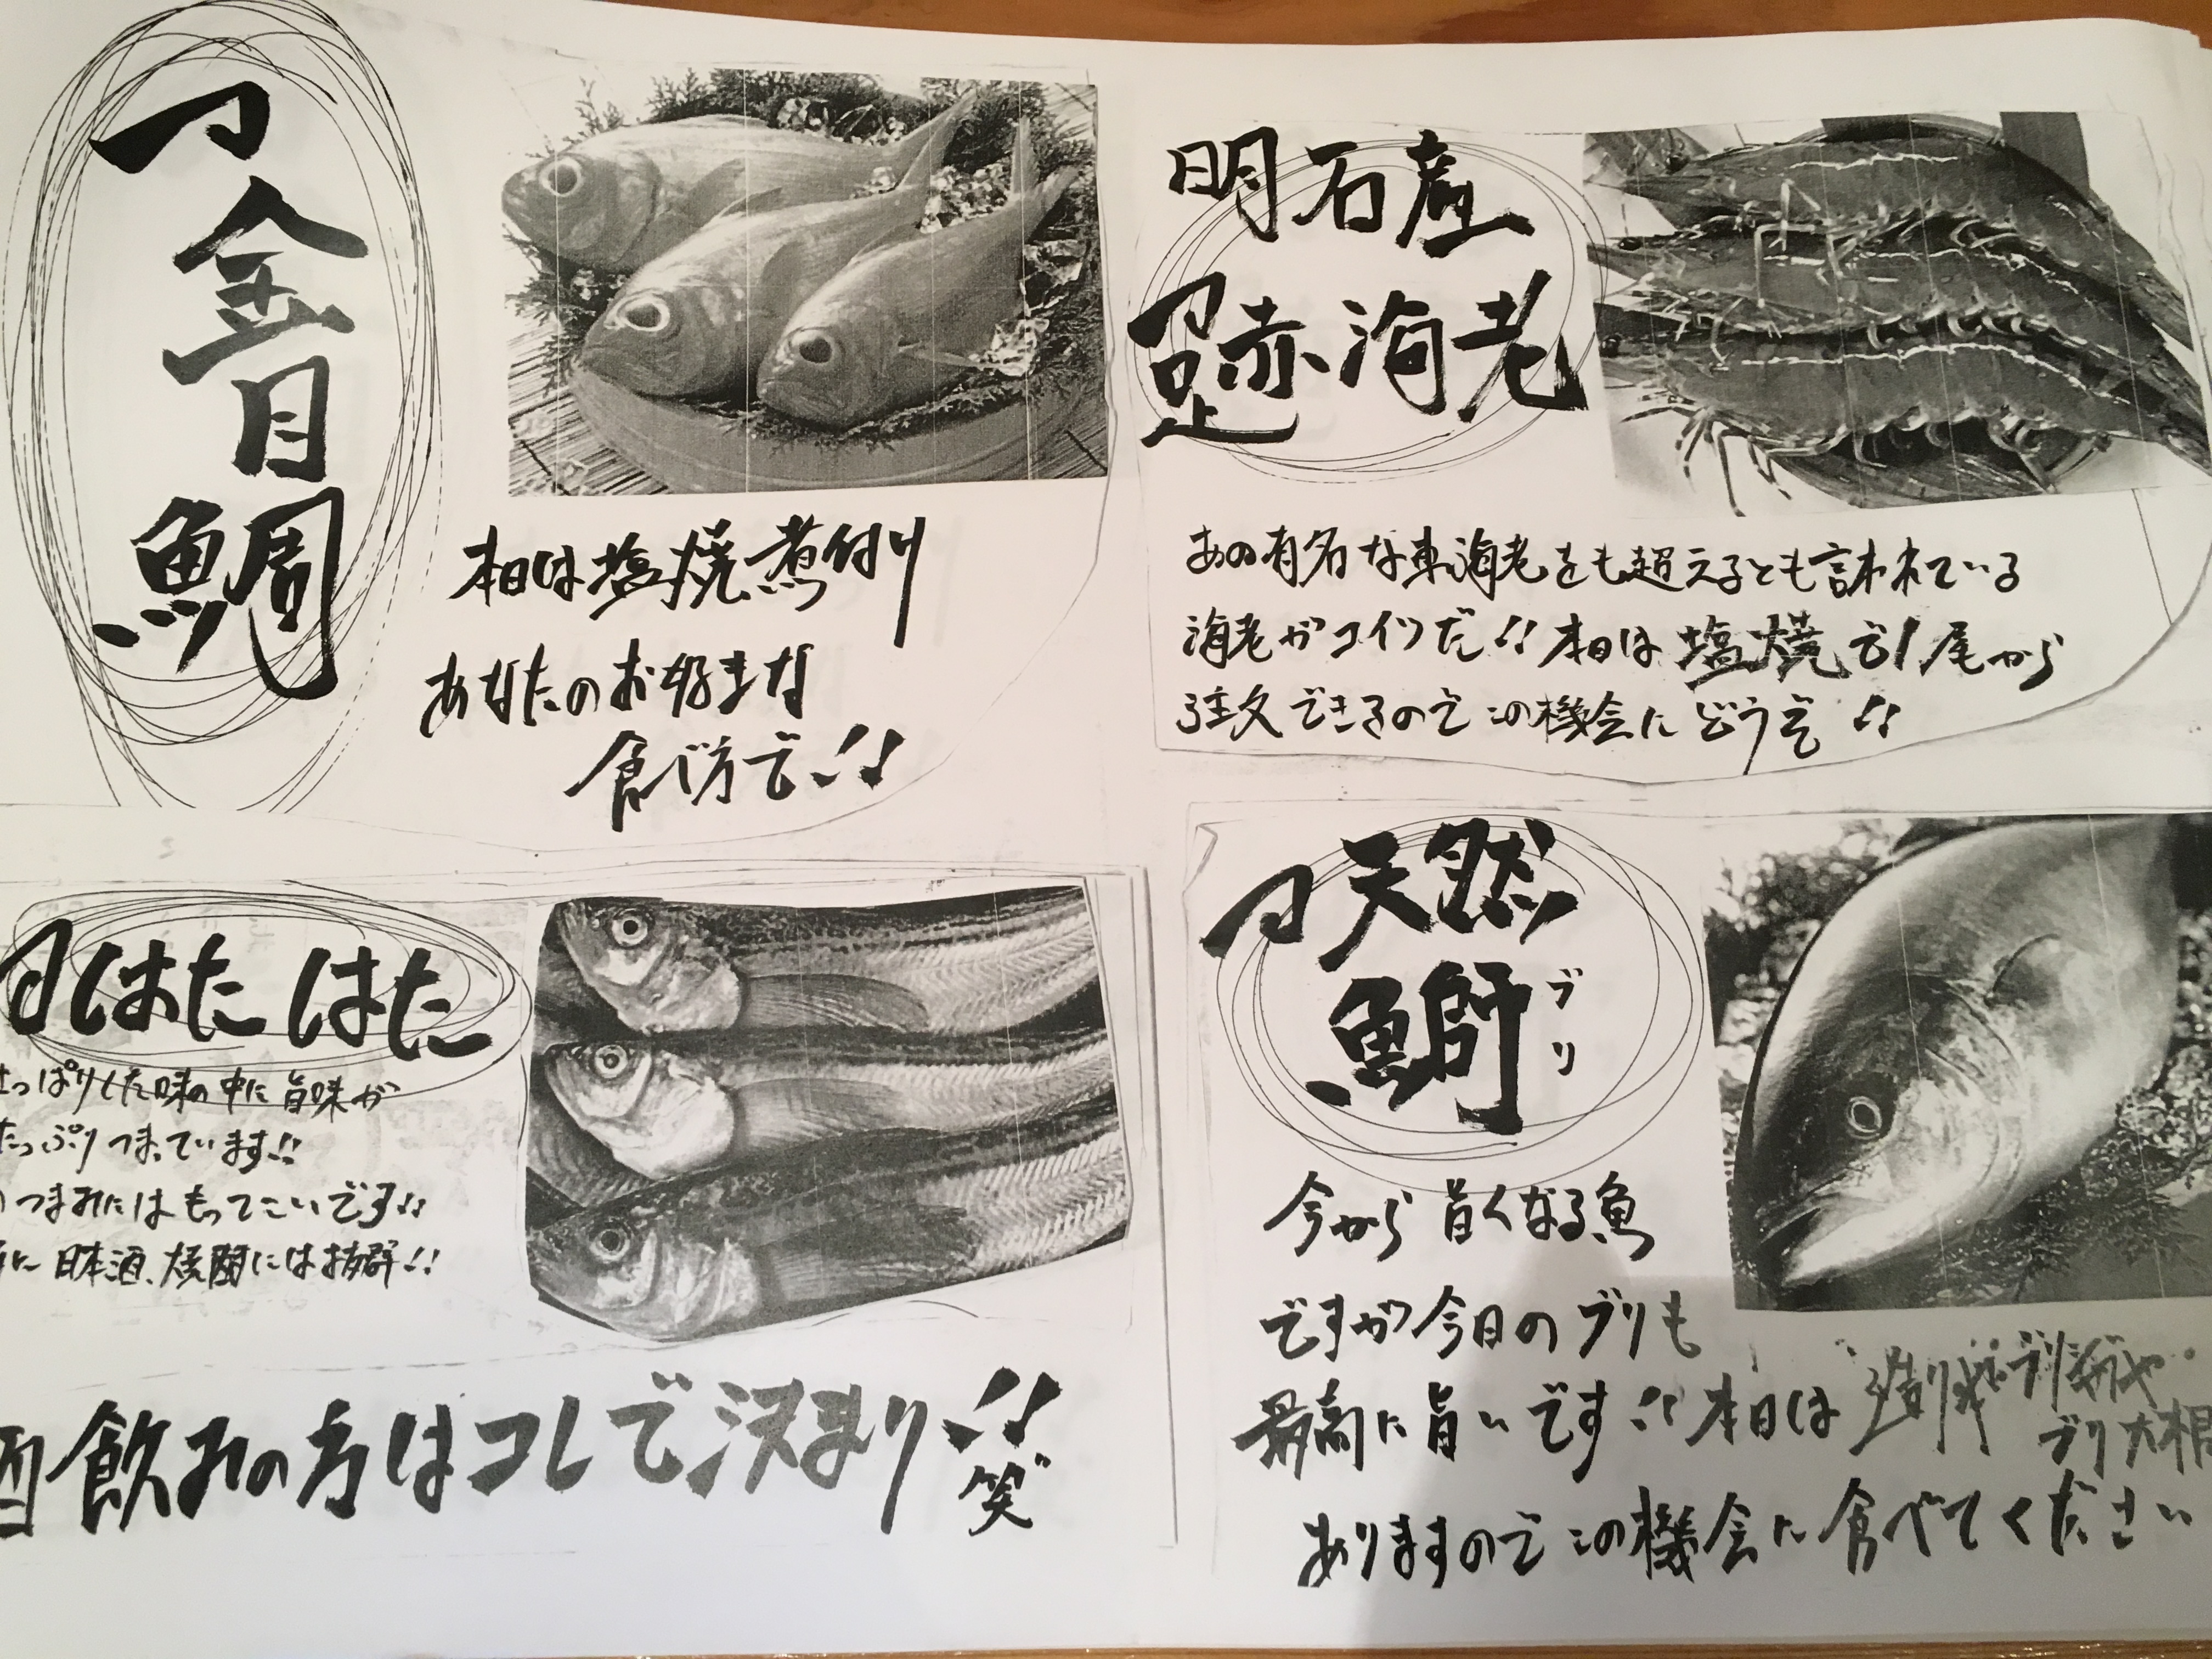 金目鯛
本日は塩焼煮付け
あなたのお好きな
食べ方で!!
明石産
足赤海老
あの有名な車海老をも超えるとも言われている
海老がコイツだ!! 本日は塩焼で1尾から
注文できるのでこの機会にどうぞ!!
はたはた
さっぱりした味の中に旨味が
たっぷりつまっています!!
つまみにはもってこいです!!
日本酒、焼酎には抜群!!
酒飲みの方はコレで決まり!!
笑
天然
鰤
ブリ
今から旨くなる魚
ですが今日のブリも
最高に旨いです!! 本日は造りや
ブリ大根
ありますのでこの機会に食べてください